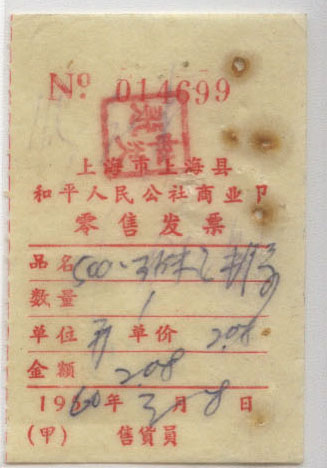 No 014699
上海市上海县
和平人民公社商业卩
零售发票
品名 500
数量 1
单位 单价 2.08
金额 2.08
1960年3月8日
(甲) 售货员